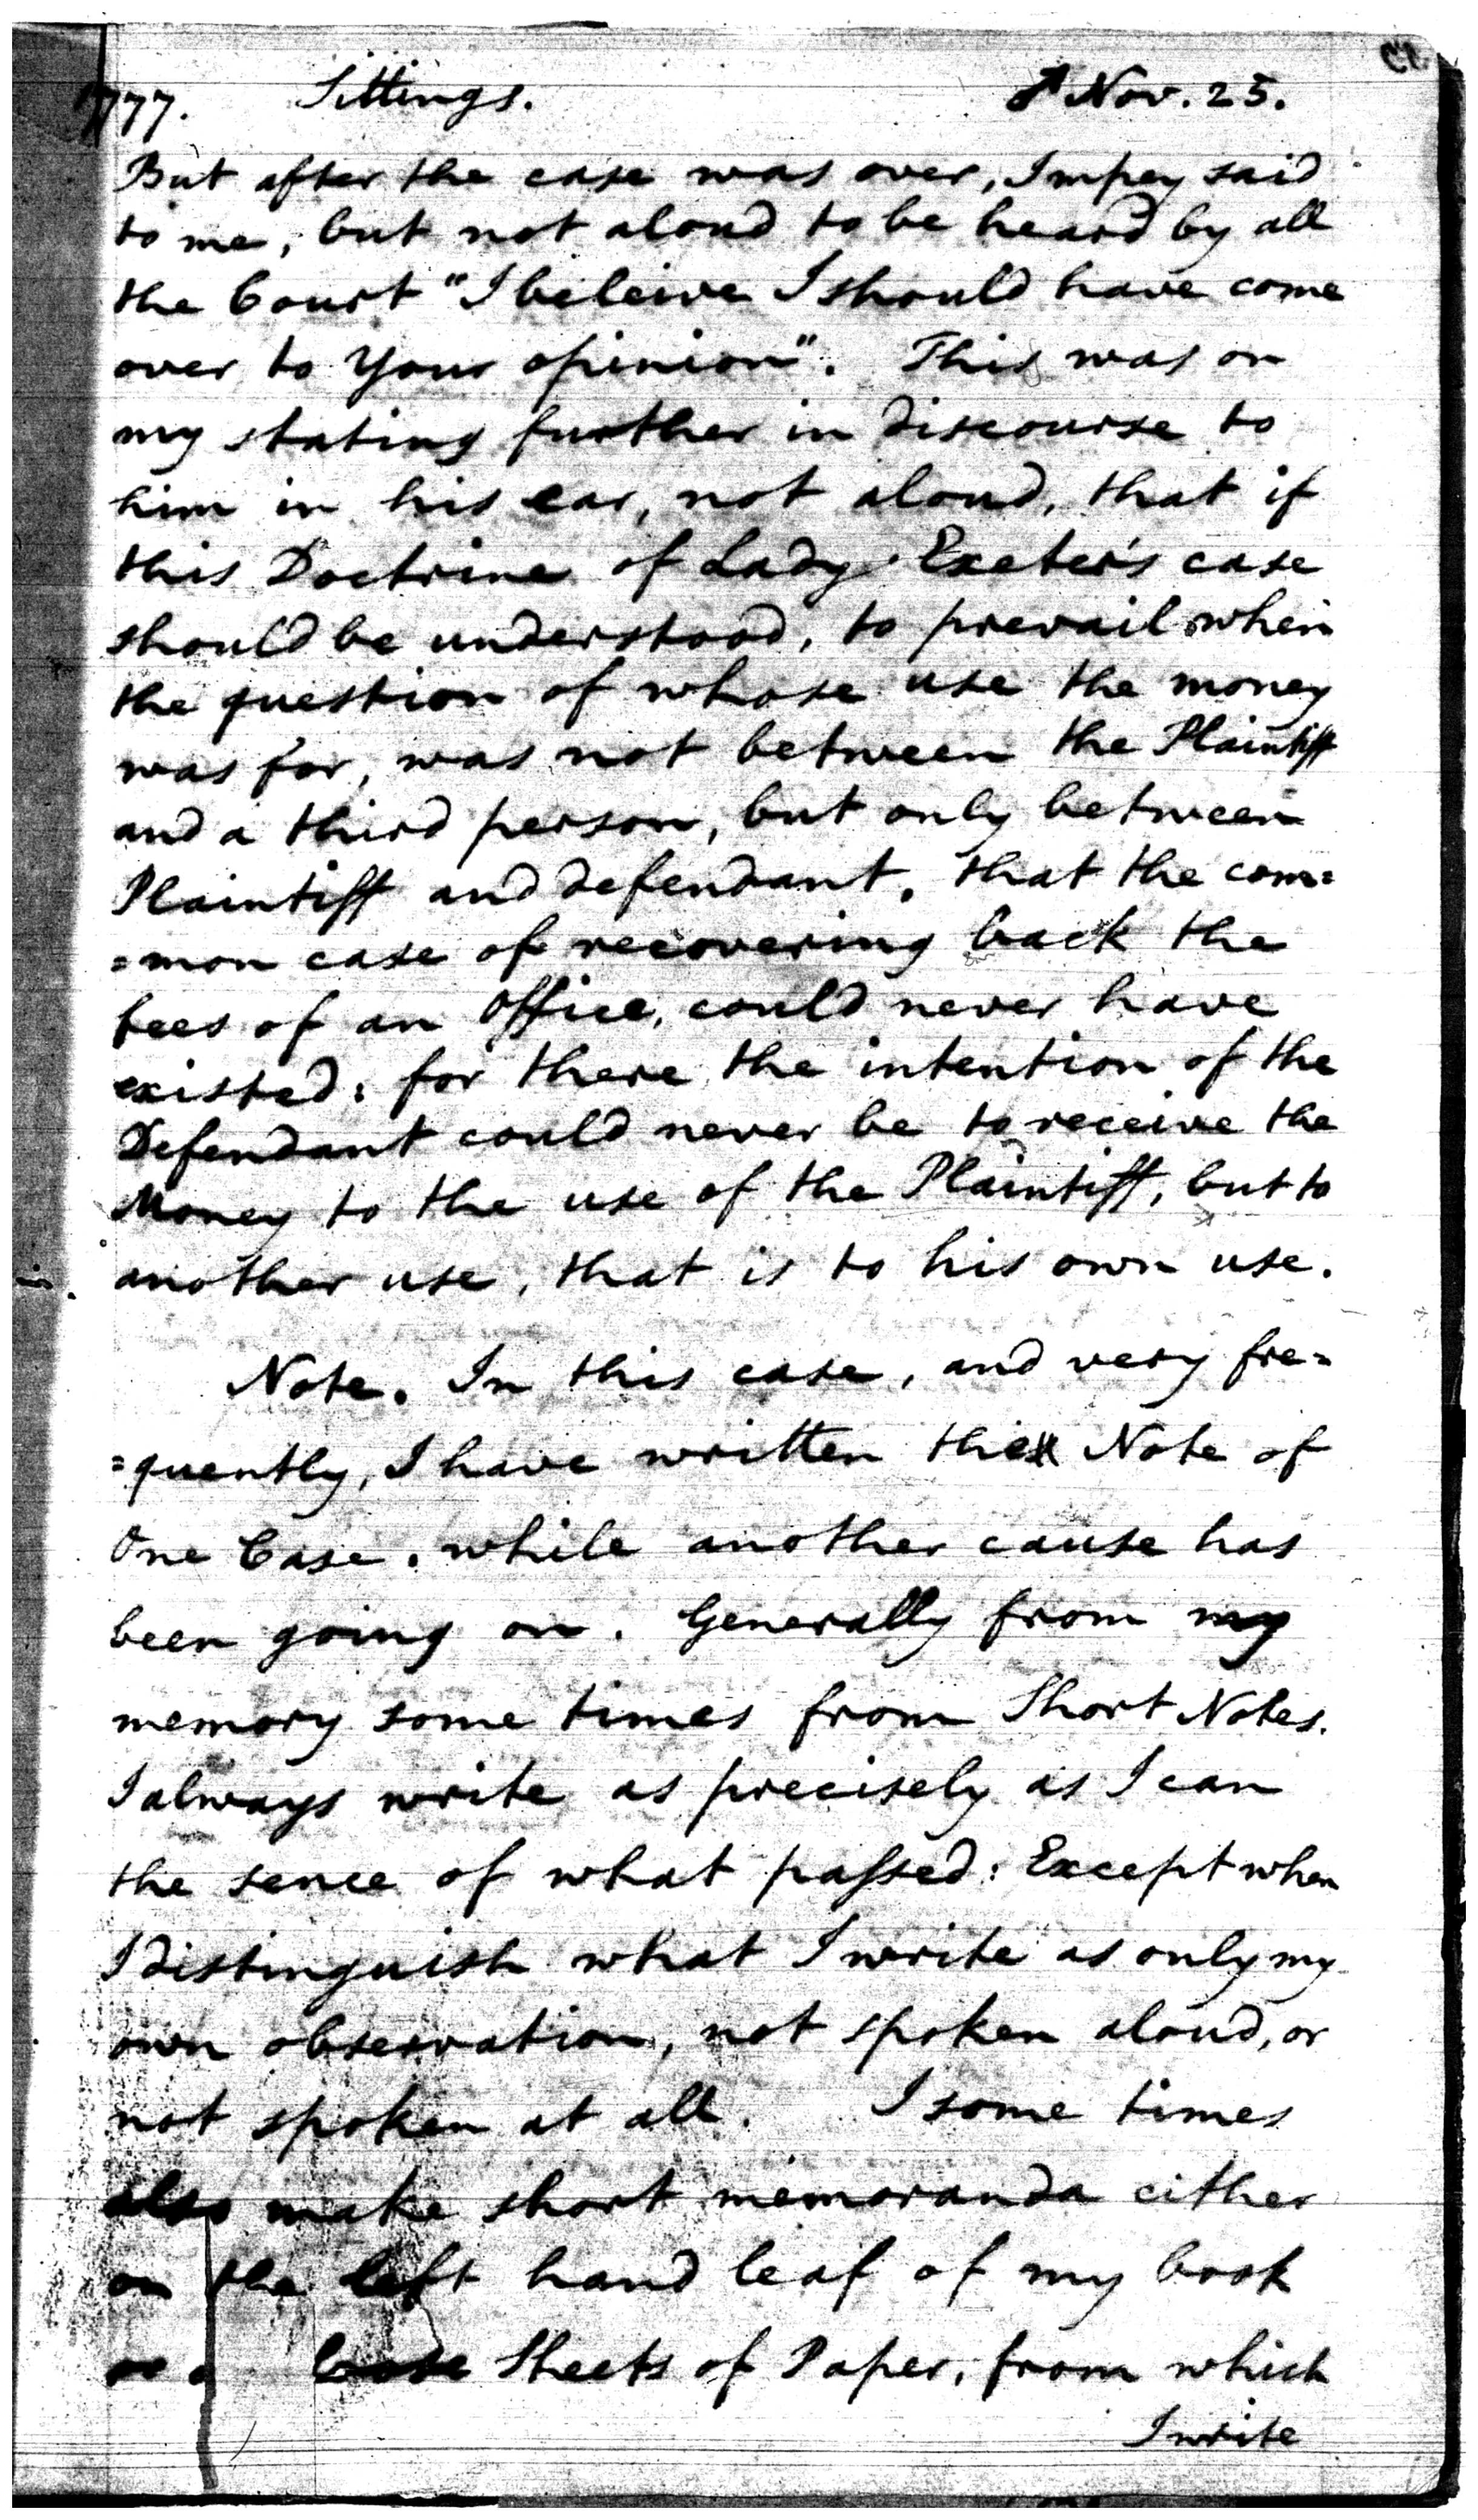 1777. Sittings. Nov. 25.
But after the case was over, Impey said
to me, but not aloud to be heard by all
the Court "I beleive I should have come
over to Your opinion". This was on
my stating further in discourse to
him in his ear, not aloud, that if
this Doctrine of Lady Exeter's case
should be understood, to prevail when
the question of whose use the money
was for, was not between the Plaintiff
and a third person, but only between
Plaintiff and defendant, that the com=
=mon case of recovering back the
fees of an Office, could never have
existed: for there the intention of the
Defendant could never be to receive the
Money to the use of the Plaintiff, but to
another use, that is to his own use.
Note. In this case, and very fre=
=quently, I have written the Note of
One Case, while another cause has
been going on. Generally from my
memory some times from Short Notes.
I always write as precisely as I can
the sence of what passed: Except when
I distinguish what I write as only my
own observation, not spoken aloud, or
not spoken at all. I some times
also make short memoranda either
on the left hand leaf of my book
or loose Sheets of Paper, from which
I write